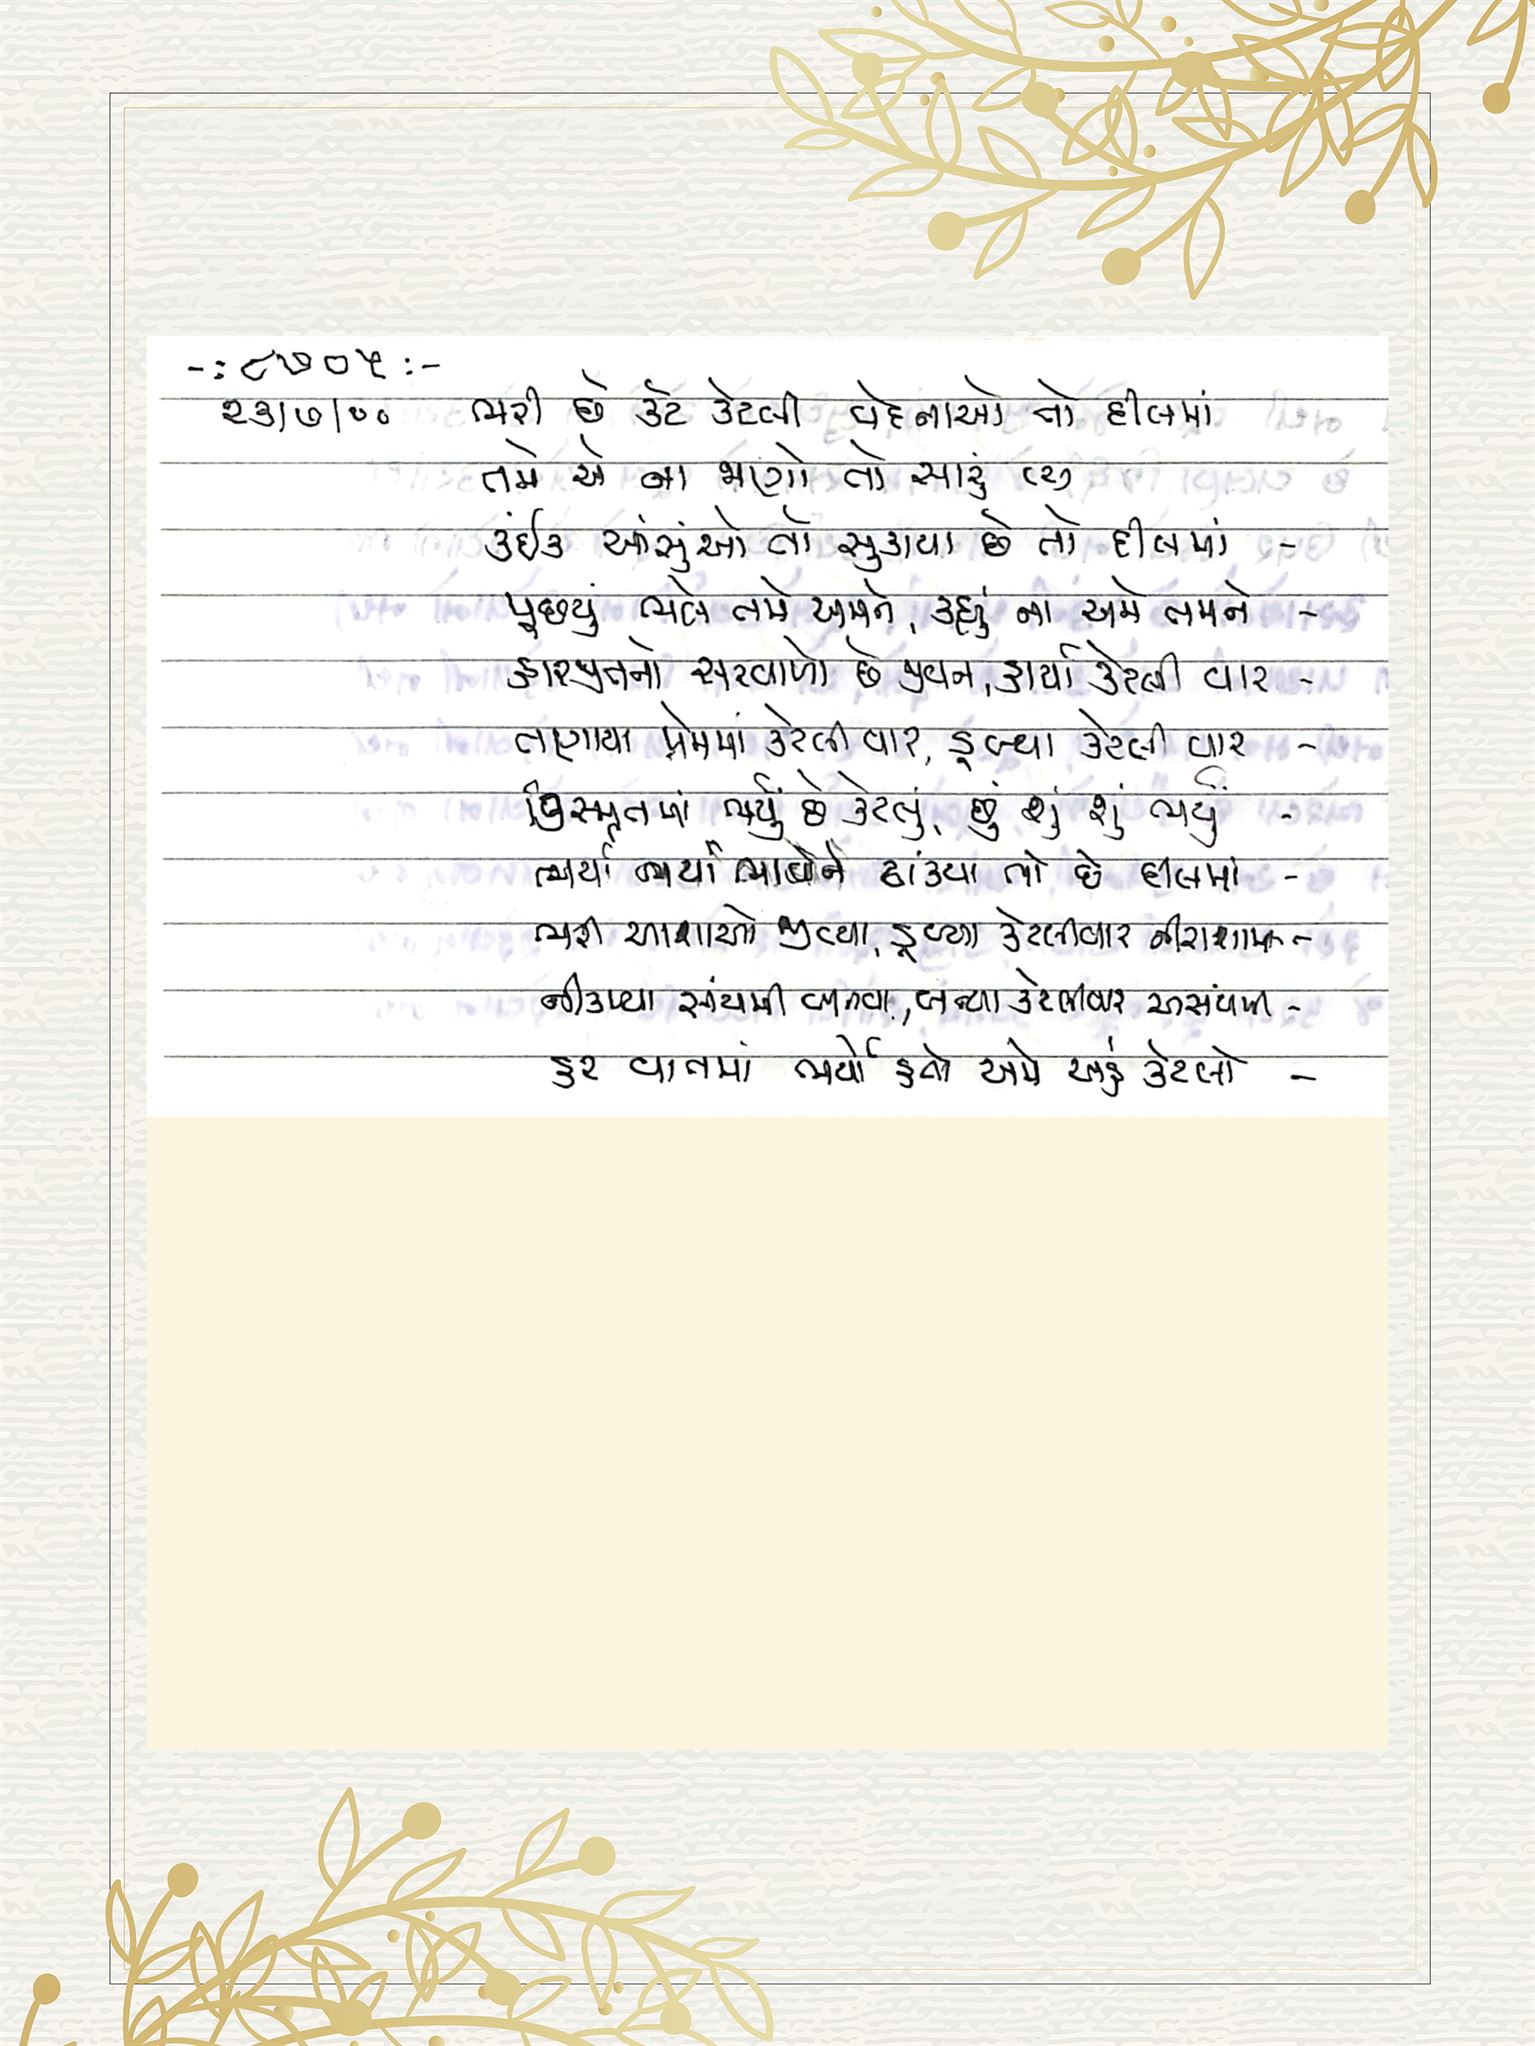 -: ૮૭૦૫ :-
૨૩/૭/૦૦ ભરી છે કંઈ કેટલી વેદનાઓ તો દીલમાં
તમે એ ના જાણો તો સારું છે
કંઈક આંસુંઓ તો સુકાયા છે તો દીલમાં -
પૂછયું ભલે તમે અમને, કહ્યું ના અમે તમને -
હારજીતનો સરવાળો છે જીવન, હાર્યા કેટલી વાર -
તણાયા પ્રેમમાં કેટલી વાર, ડૂબ્યા કેટલી વાર -
વિસ્મૃતમાં ભર્યું છે કેટલું, છું શું શું ભર્યું -
ભર્યા ભર્યા ભાવોને ઢાંક્યા તો છે દીલમાં -
ભરી આશાઓ જીવ્યા, ડૂબ્યા કેટલીવાર નીરાશામાં -
નીકળ્યા સંયમી બનવા, બન્યા કેટલીવાર અસંયમી -
હર વાતમાં ભર્યો હતો અમે અહં કેટલો -